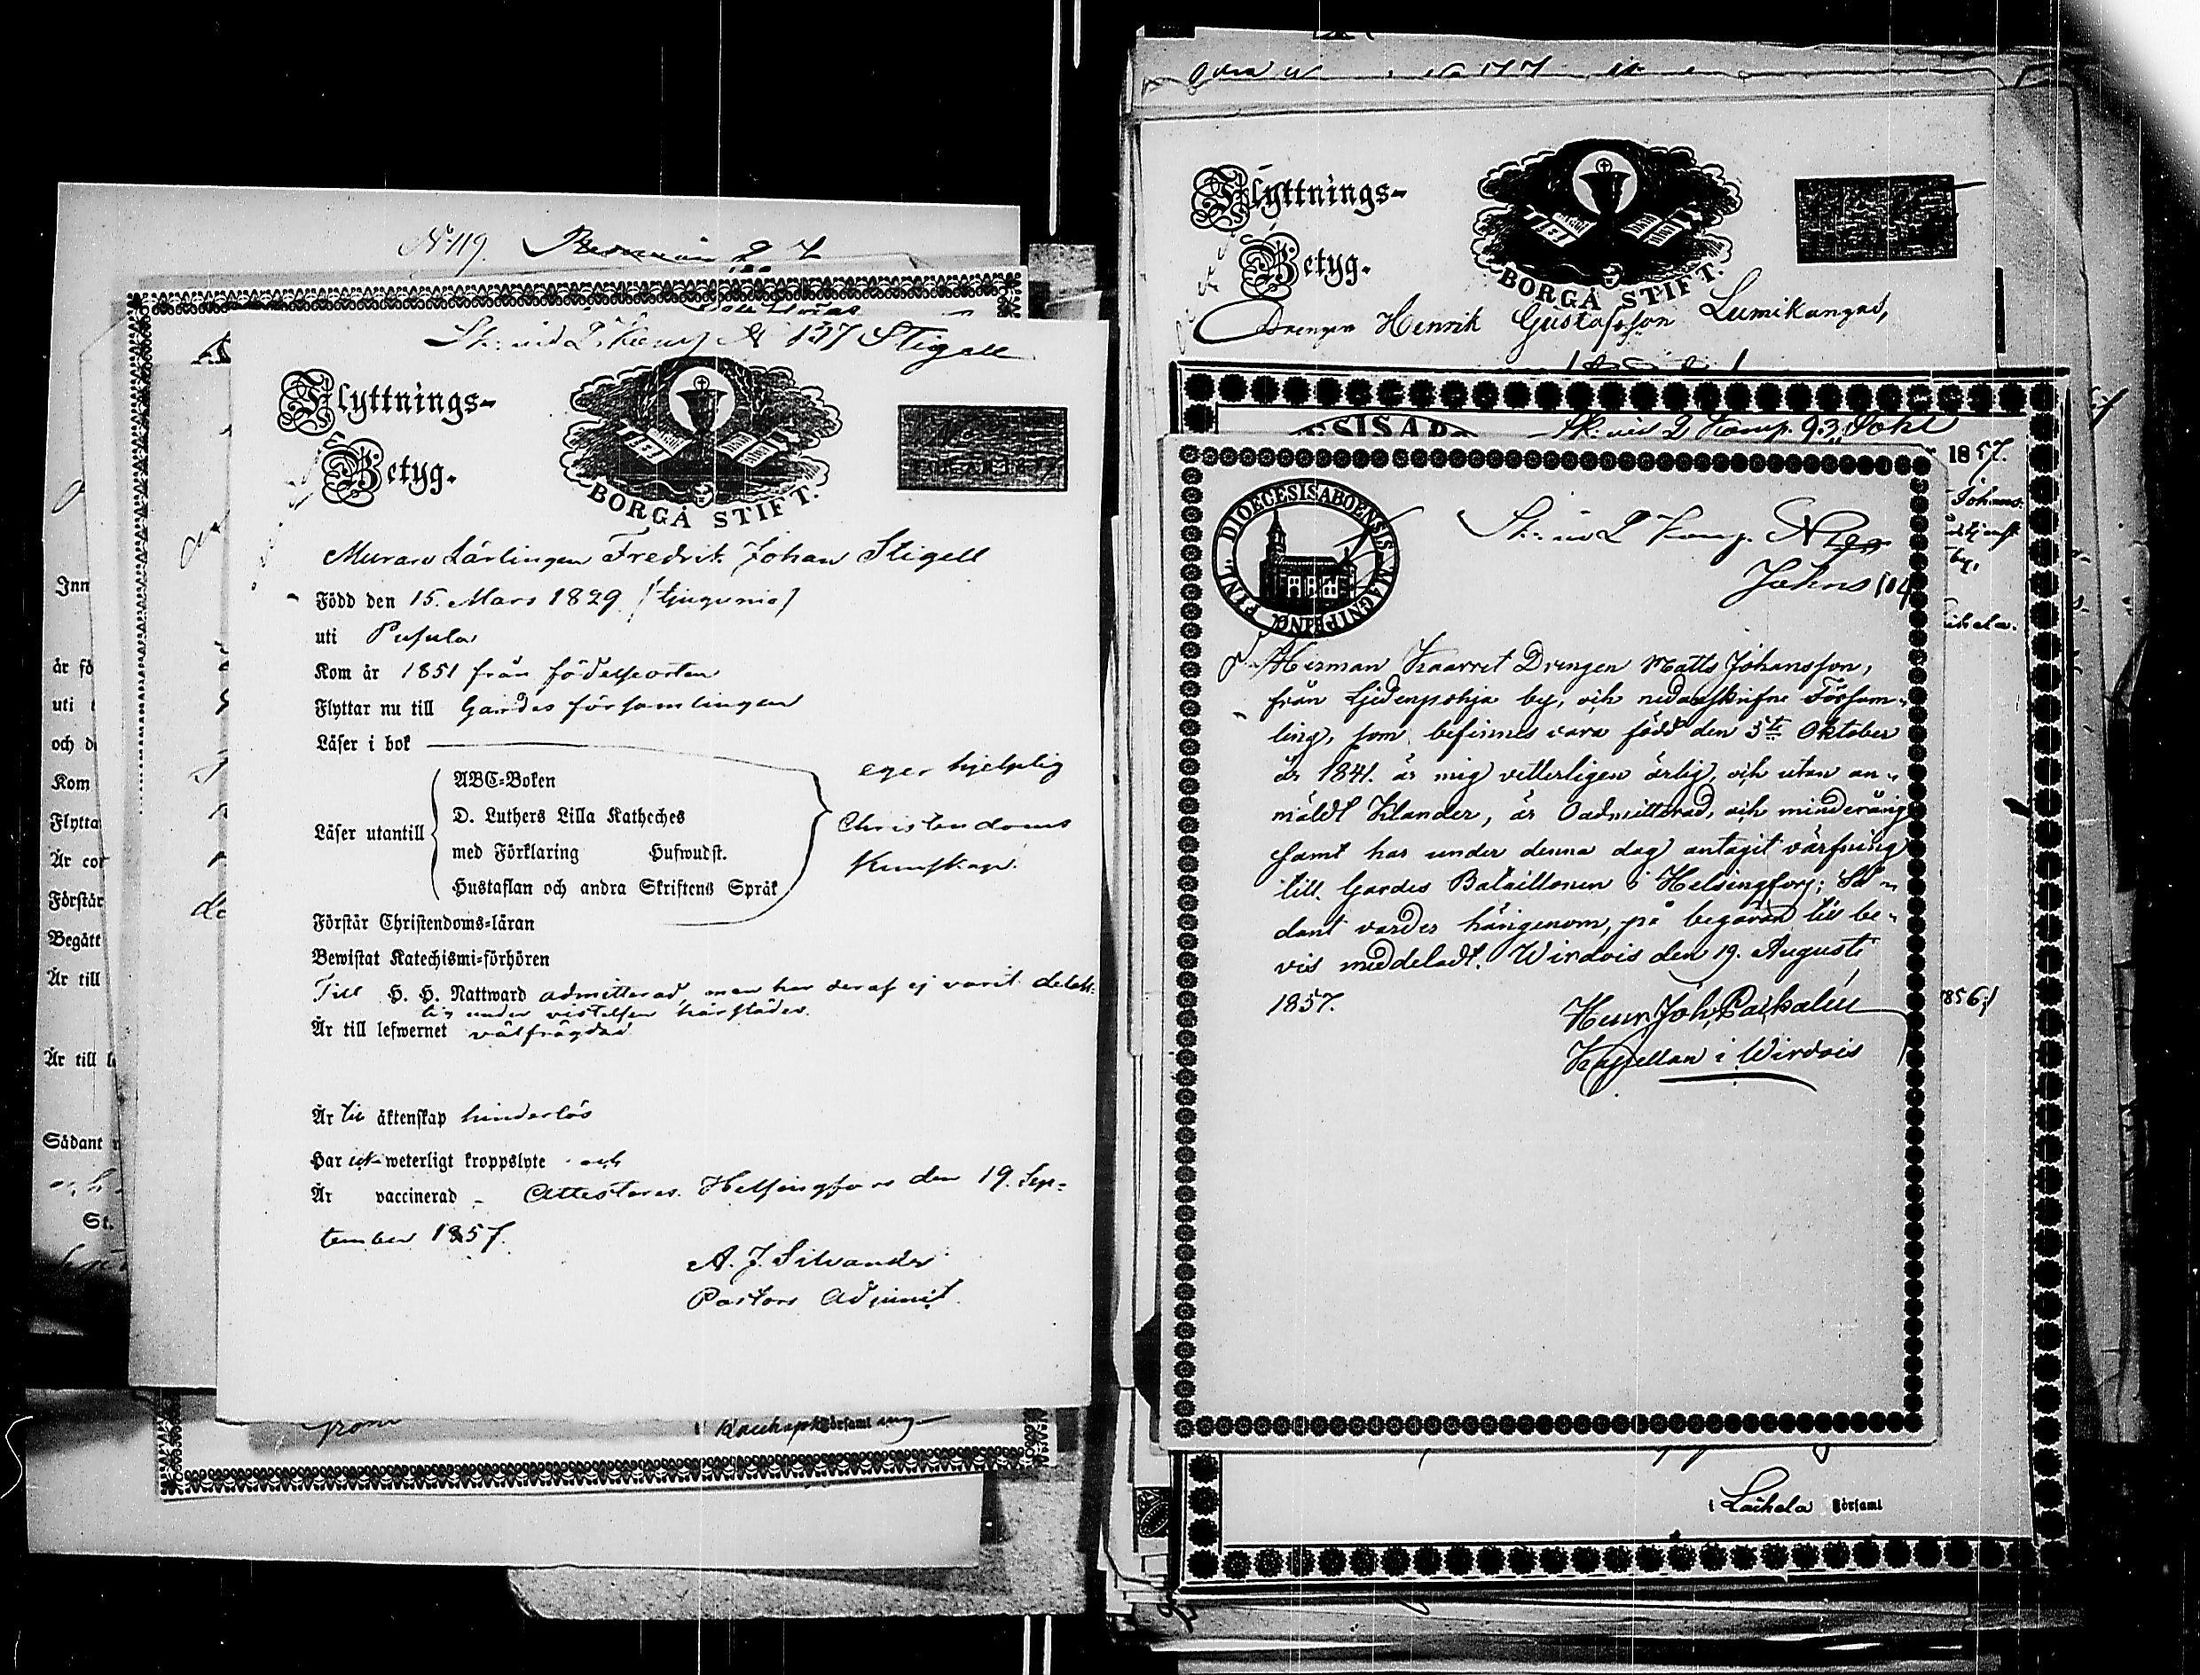 No 119.
Sk: vid 2. Komp N 137 Stigell
Flyttnings-
Betyg.
BORGÅ STIFT.
Murare Lärlingen Fredrik Johan Stigell
Född den 15. Mars 1829 (tjugunio)
uti Pusula
Kom år 1851 från födelseorten
Flyttar nu till Gardes församlingen
Läser i bok
Läser utantill
ABC-Boken
D. Luthers Lilla Katheches
med Förklaring Hufwudst.
Hustaflan och andra Skriftens Språk
eger hjelplig
Christendoms
kunskap.
Förstår Christendoms-läran
Bewistat Katechismi-förhören
Till H. H. Nattward admitterad, men har deraf ej varit delak-
tig under vistelsen härstädes.
Är till lefwernet välfrägdad
Är till äktenskap hinderlös
Har ick weterligt kroppslyte och
Är vaccinerad - Attesteras. Helsingfors den 19. Sep-
tember 1857.
A. J. Silvander
Pastors Adjunct.
Inn
är fö
uti
och d
Kom
Flytta
Är co
Förstår
Begått
Är till
Är till l
Sådant
St.
församl
Flyttnings-
Betyg.
BORGÅ STIFT.
Drengen Henrik Gustafsson Lumikangas,
Sk. vid 2 Komp. 93 Joh
1857.
Johans
DIOECESIS ABOENSIS MAGNI PRINC. FINL.
Sk: vid 2 Komp. N
Johns 104
Herman Kaarret Drengen Matts Johansson,
från Liedenpohja by, och nedanskrifne Försam-
ling, som befinnes vara född den 5te Oktober
år 1841. är mig vetterligen ärlig, och utan an-
mäldt Klander, är Oadmitterad, och minderårig
samt har under denna dag antagit värfning
till Gardes Bataillonen i Helsingfors; Så-
dant varder härigenom, på begäran till be-
vis meddeladt. Wirdois den 19. Augusti
1857.
Henr. Joh. Paikalén
Kapellan i Wirdois
856
i Laihela församl